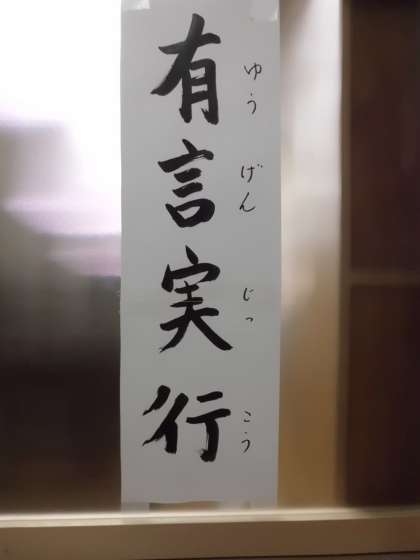 有言実行
ゆうげんじっこう